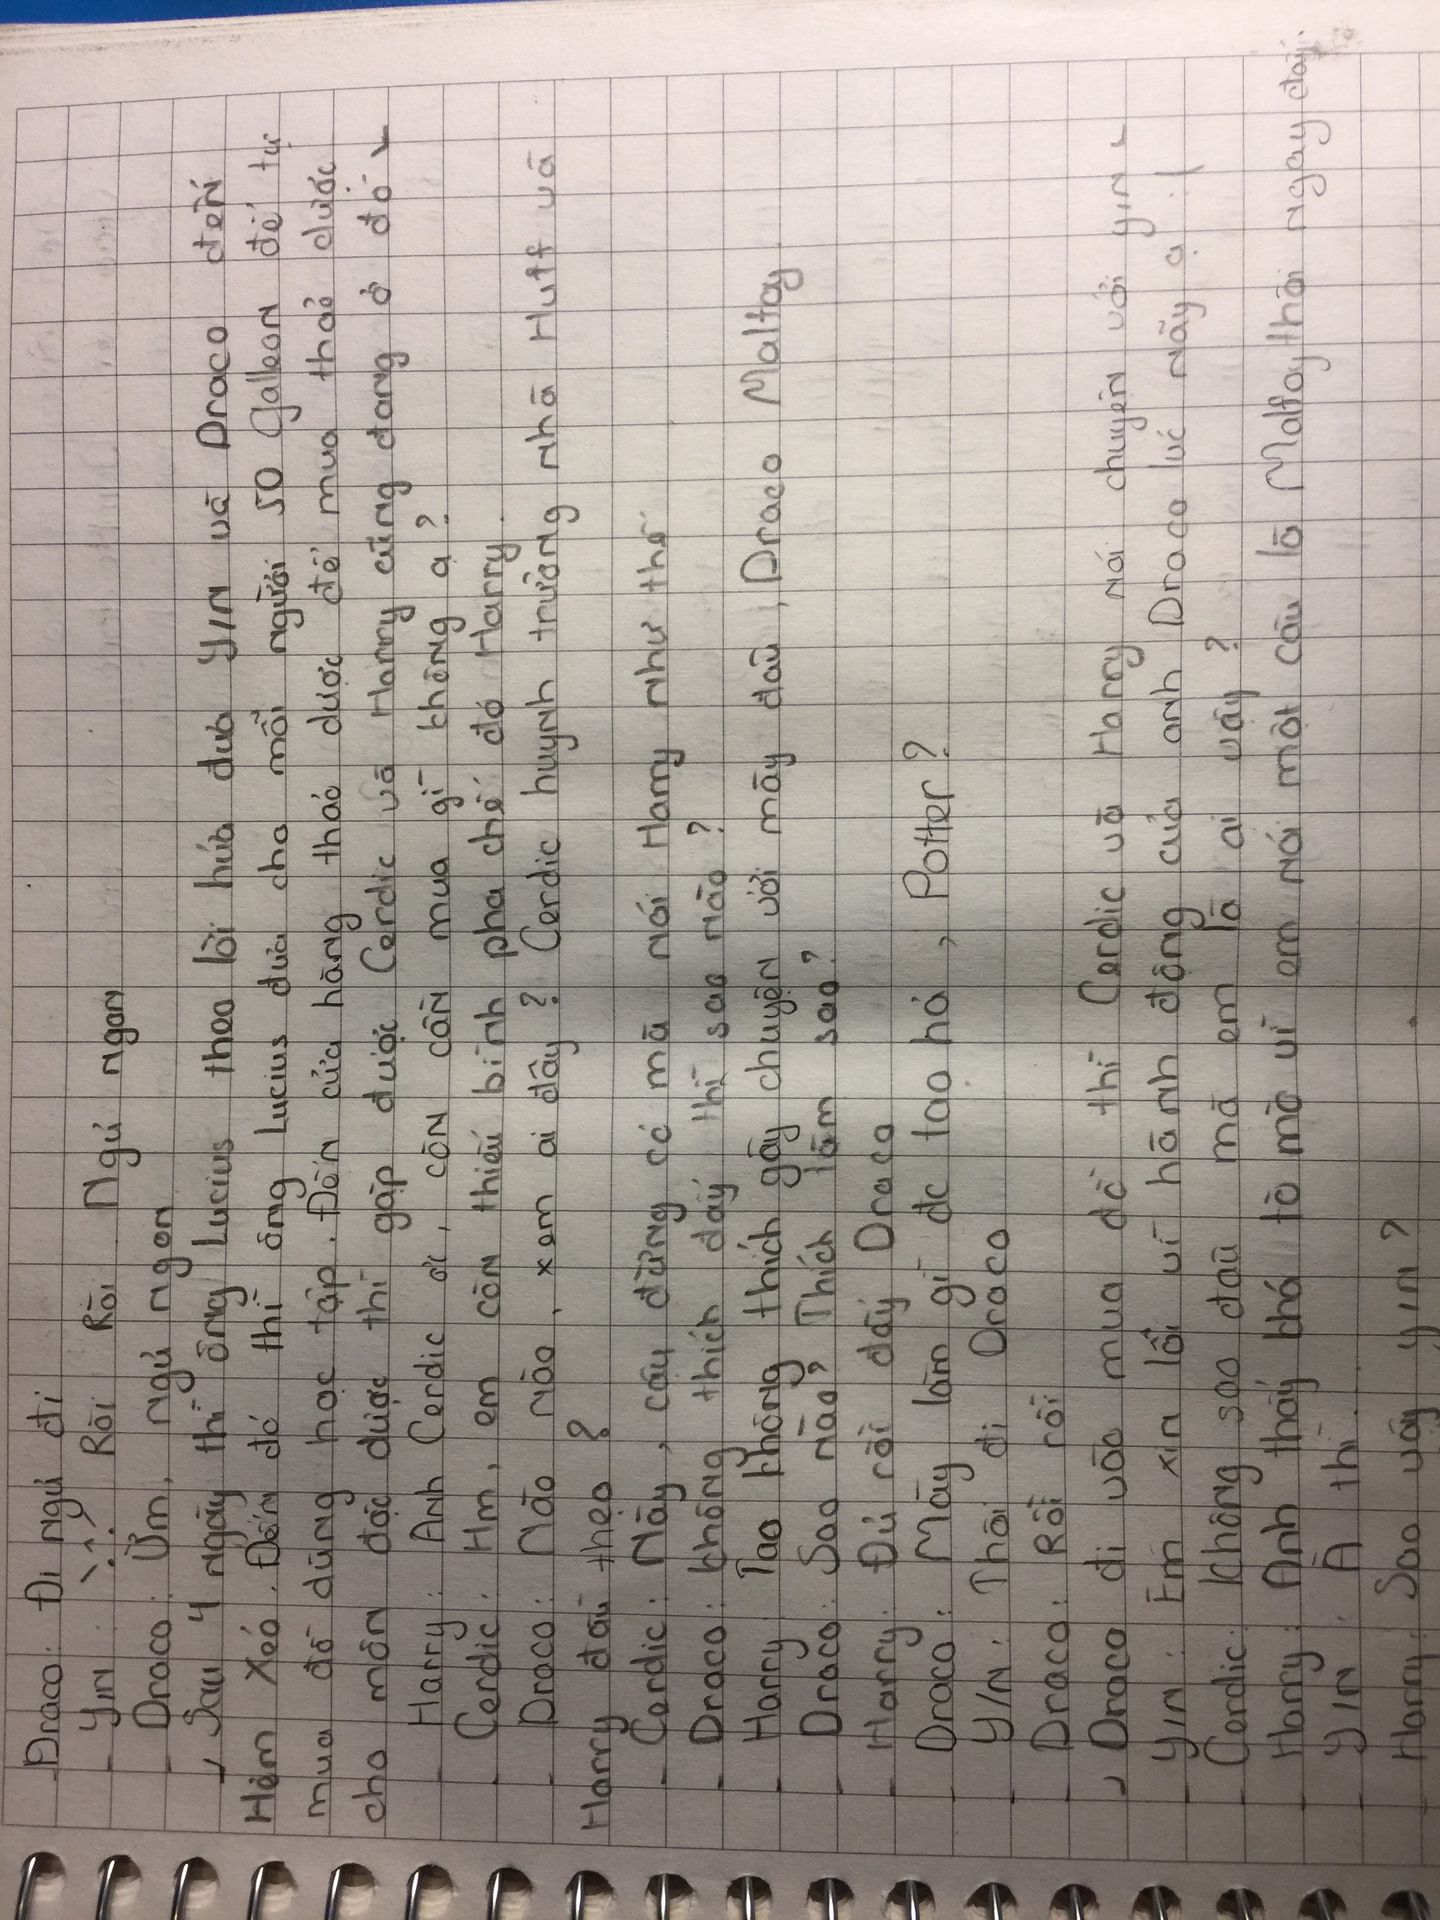 - Draco: Đi ngủ đi
- YIN: Rồi Rồi. Ngủ ngon
- Draco: Ừm, ngủ ngon
Sau 4 ngày thì ông Lucius theo lời hứa đưa YIN và Draco đến
Hẻm Xéo. Đến đó thì ông Lucius đưa cho mỗi người 50 Galleon để tự
mua đồ dùng học tập. Đến cửa hàng thảo dược để mua thảo dược
cho môn độc dược thì gặp được Cerdic và Harry cũng đang ở đó
- Harry: Anh Cerdic ơi, còn cần mua gì không ạ?
- Cerdic: Hm, em còn thiếu bình pha chế đó Harry.
- Draco: Nào nào, xem ai đây? Cerdic huynh trưởng nhà Huff và
Harry đầu thẹo?
- Cerdic: Này, cậu đừng có mà nói Harry như thế
- Draco: Không thích đấy thì sao nào?
- Harry: Tao không thích gây chuyện với mày đâu, Draco Malfoy
- Draco: Sao nào? Thích lắm sao?
- Harry: Đủ rồi đấy Draco
- Draco: Mày làm gì đc tao hả, Potter?
- YIN: Thôi đi Draco
- Draco: Rồi rồi
Draco đi vào mua đồ thì Cerdic và Harry nói chuyện với YIN
- YIN: Em xin lỗi vì hành động của anh Draco lúc nãy ạ :(
- Cerdic: Không sao đâu mà em là ai vậy?
- Harry: Anh thấy khá tò mò vì em nói một câu là Malfoy thôi ngay đấy.
- YIN: À thì...
- Harry: Sao vậy YIN?